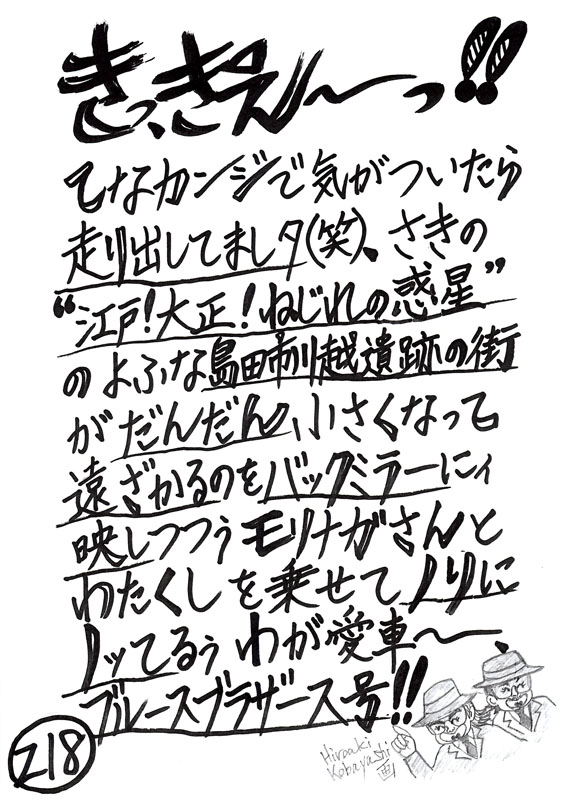 きっ、きえん〜っ!!
てなカンジで気がついたら
走り出してましタ(笑)、さきの
“江戸!大正!ねじれの惑星”
のよふな島田市川越遺跡の街
がだんだん、小さくなって
遠ざかるのをバックミラーにィ
映しつつぅモリナガさんと
わたくしを乗せてノリに
ノッてるぅわが愛車〜、
ブルースブラザース号!!
Hiroaki
Kobayashi
画
218